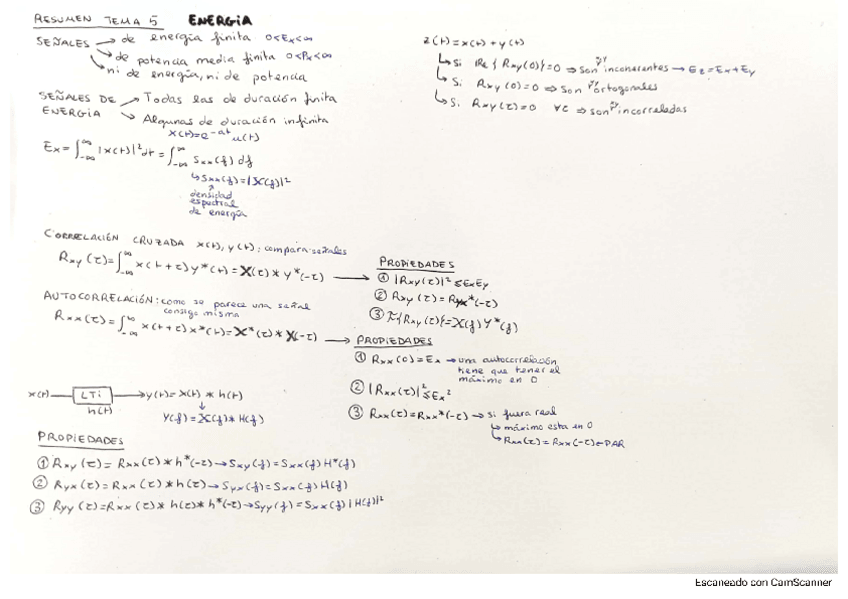 RESUMEN TEMA 5 ENERGÍA
SEÑALES → de energía finita 0<Ex<∞
→ de potencia media finita 0<Px<∞
→ ni de energía, ni de potencia
SEÑALES DE ENERGÍA → Todas las de duración finita
→ Algunas de duración infinita
x(t)=e^-at u(t)
Ex = ∫_-∞^∞ |x(t)|² dt = ∫_-∞^∞ Sxx(f) df
↳ Sxx(f) = |X(f)|²
densidad
espectral
de energía
z(t) = x(t) + y(t)
↳ Si Re{Rxy(0)}=0 ⇒ son incoherentes → Ez = Ex + Ey
↳ Si Rxy(0)=0 ⇒ son ortogonales
↳ Si Rxy(τ)=0 ∀τ ⇒ son incorreladas
CORRELACIÓN CRUZADA x(t), y(t): compara señales
Rxy(τ) = ∫_-∞^∞ x(t+τ) y*(t) = X(τ) * y*(-τ) →
PROPIEDADES
① |Rxy(τ)|² ≤ ExEy
② Rxy(τ) = Ryx*(-τ)
③ F{Rxy(τ)} = X(f) Y*(f)
AUTOCORRELACIÓN: como se parece una señal
consigo misma
Rxx(τ) = ∫_-∞^∞ x(t+τ) x*(t) = X*(τ) * X(-τ) →
PROPIEDADES
① Rxx(0) = Ex → una autocorrelación
tiene que tener el
máximo en 0
② |Rxx(τ)|² ≤ Ex²
③ Rxx(τ) = Rxx*(-τ) → si fuera real
↳ máximo esta en 0
↳ Rxx(τ) = Rxx(-τ) ← PAR
x(t) → LTI → y(t) = x(t) * h(t)
h(t)
↓
Y(f) = X(f) * H(f)
PROPIEDADES
① Rxy(τ) = Rxx(τ) * h*(-τ) → Sxy(f) = Sxx(f) H*(f)
② Ryx(τ) = Rxx(τ) * h(τ) → Syx(f) = Sxx(f) H(f)
③ Ryy(τ) = Rxx(τ) * h(τ) * h*(-τ) → Syy(f) = Sxx(f) |H(f)|²
Escaneado con CamScanner